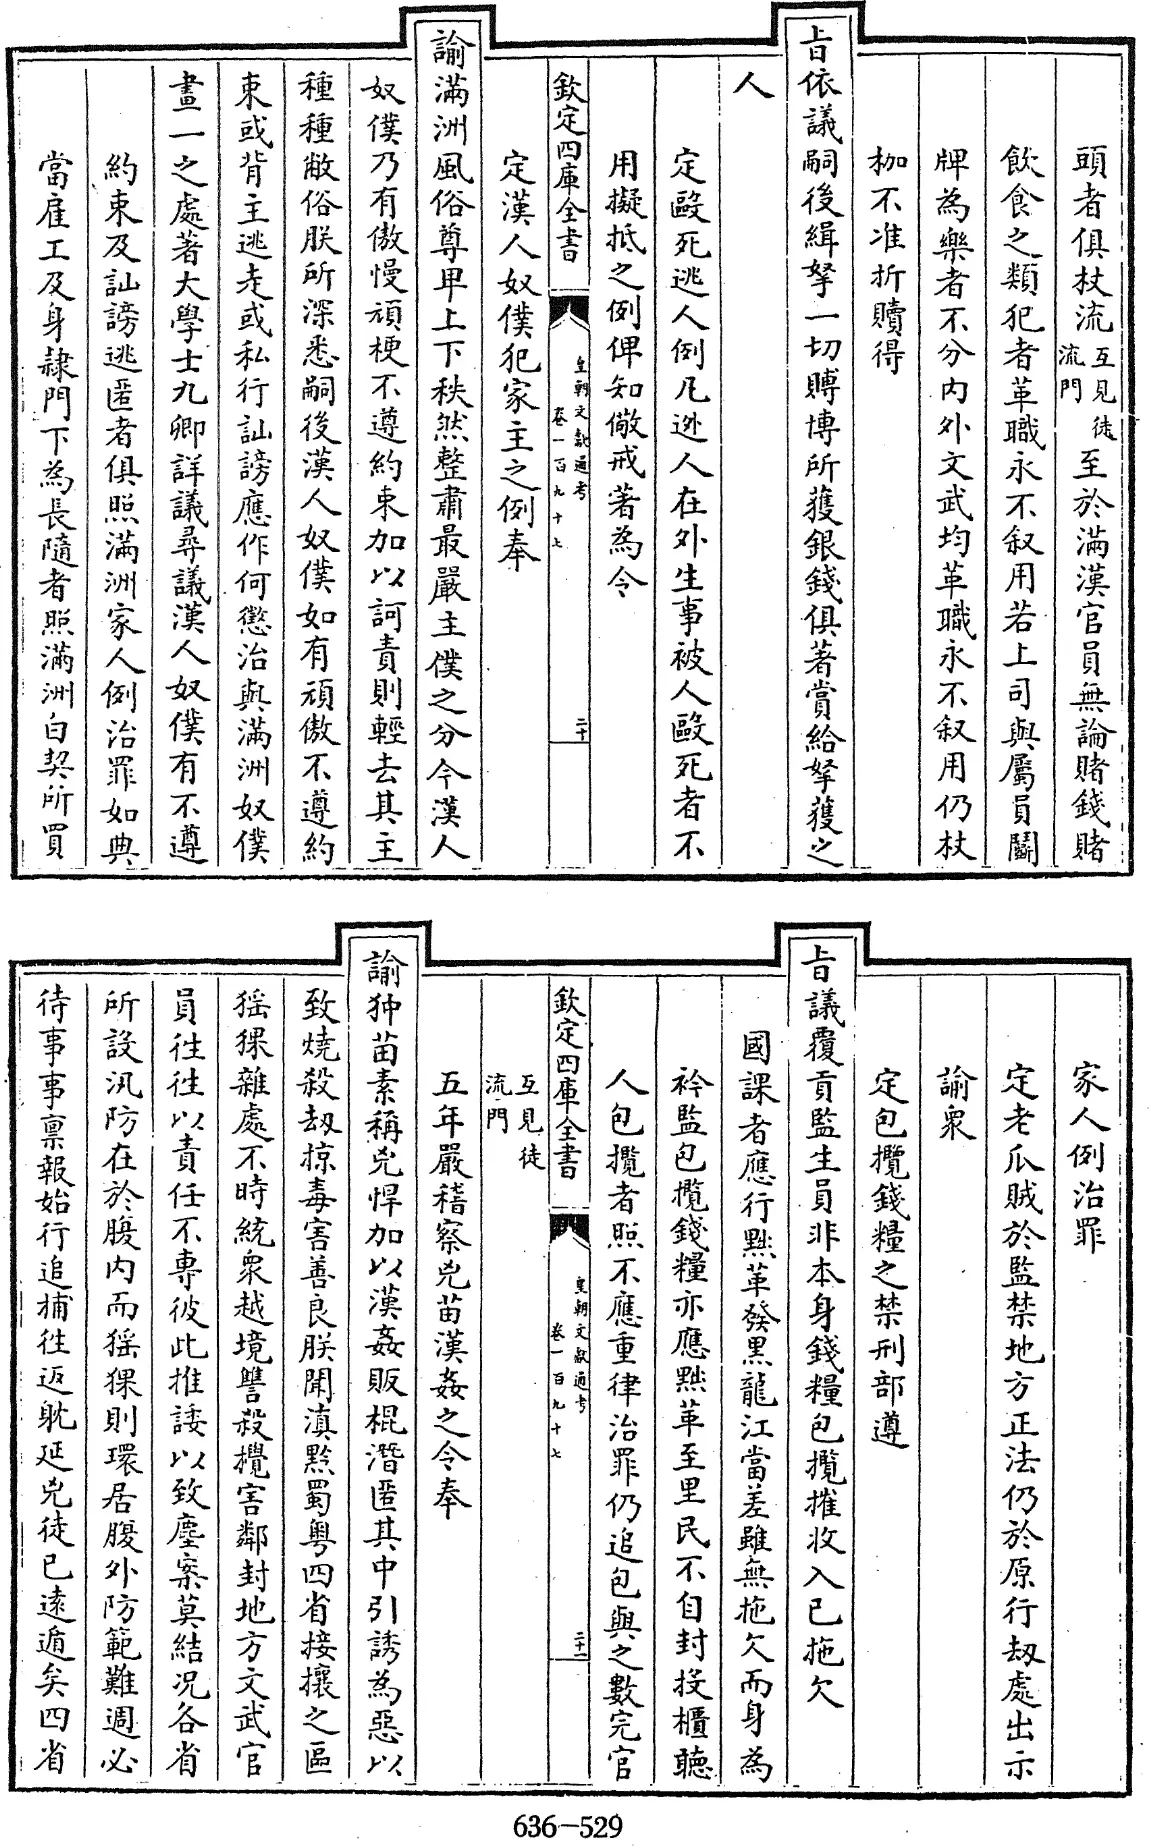 頭者俱杖流互見徒流門至於滿漢官員無論賭錢賭
飲食之類犯者革職永不叙用若上司與屬員鬭
牌為樂者不分内外文武均革職永不叙用仍杖
枷不准折贖得
旨依議嗣後緝拏一切賭博所獲銀錢俱著賞給拏獲之
人
定毆死逃人例凡逃人在外生事被人毆死者不
用擬抵之例俾知儆戒著為令
欽定四庫全書
皇朝文獻通考
卷一百九十七
二十
定漢人奴僕犯家主之例奉
諭滿洲風俗尊卑上下秩然整肅最嚴主僕之分今漢人
奴僕乃有傲慢頑梗不遵約束加以訶責則輕去其主
種種敝俗朕所深悉嗣後漢人奴僕如有頑傲不遵約
束或背主逃走或私行訕謗應作何懲治與滿洲奴僕
畫一之處著大學士九卿詳議尋議漢人奴僕有不遵
約束及訕謗逃匿者俱照滿洲家人例治罪如典
當雇工及身隸門下為長隨者照滿洲白契所買
家人例治罪
定老瓜賊於監禁地方正法仍於原行刼處出示
諭衆
定包攬錢糧之禁刑部遵
旨議覆貢監生員非本身錢糧包攬摧收入己拖欠
國課者應行黜革發黑龍江當差雖無拖欠而身為
衿監包攬錢糧亦應黜革至里民不自封投櫃聽
人包攬者照不應重律治罪仍追包與之數完官
欽定四庫全書
皇朝文獻通考
卷一百九十七
二十一
互見徒
流門
五年嚴稽察兇苗漢姦之令奉
諭狆苗素稱兇悍加以漢姦販棍潛匿其中引誘為惡以
致燒殺刼掠毒害善良朕聞滇黔蜀粤四省接攘之區
猺猓雜處不時統衆越境讐殺攪害鄰封地方文武官
員往往以責任不專彼此推諉以致塵案莫結况各省
所設汛防在於腹内而猺猓則環居腹外防範難週必
待事事禀報始行追捕往返躭延兇徒已遠遁矣四省
636—529